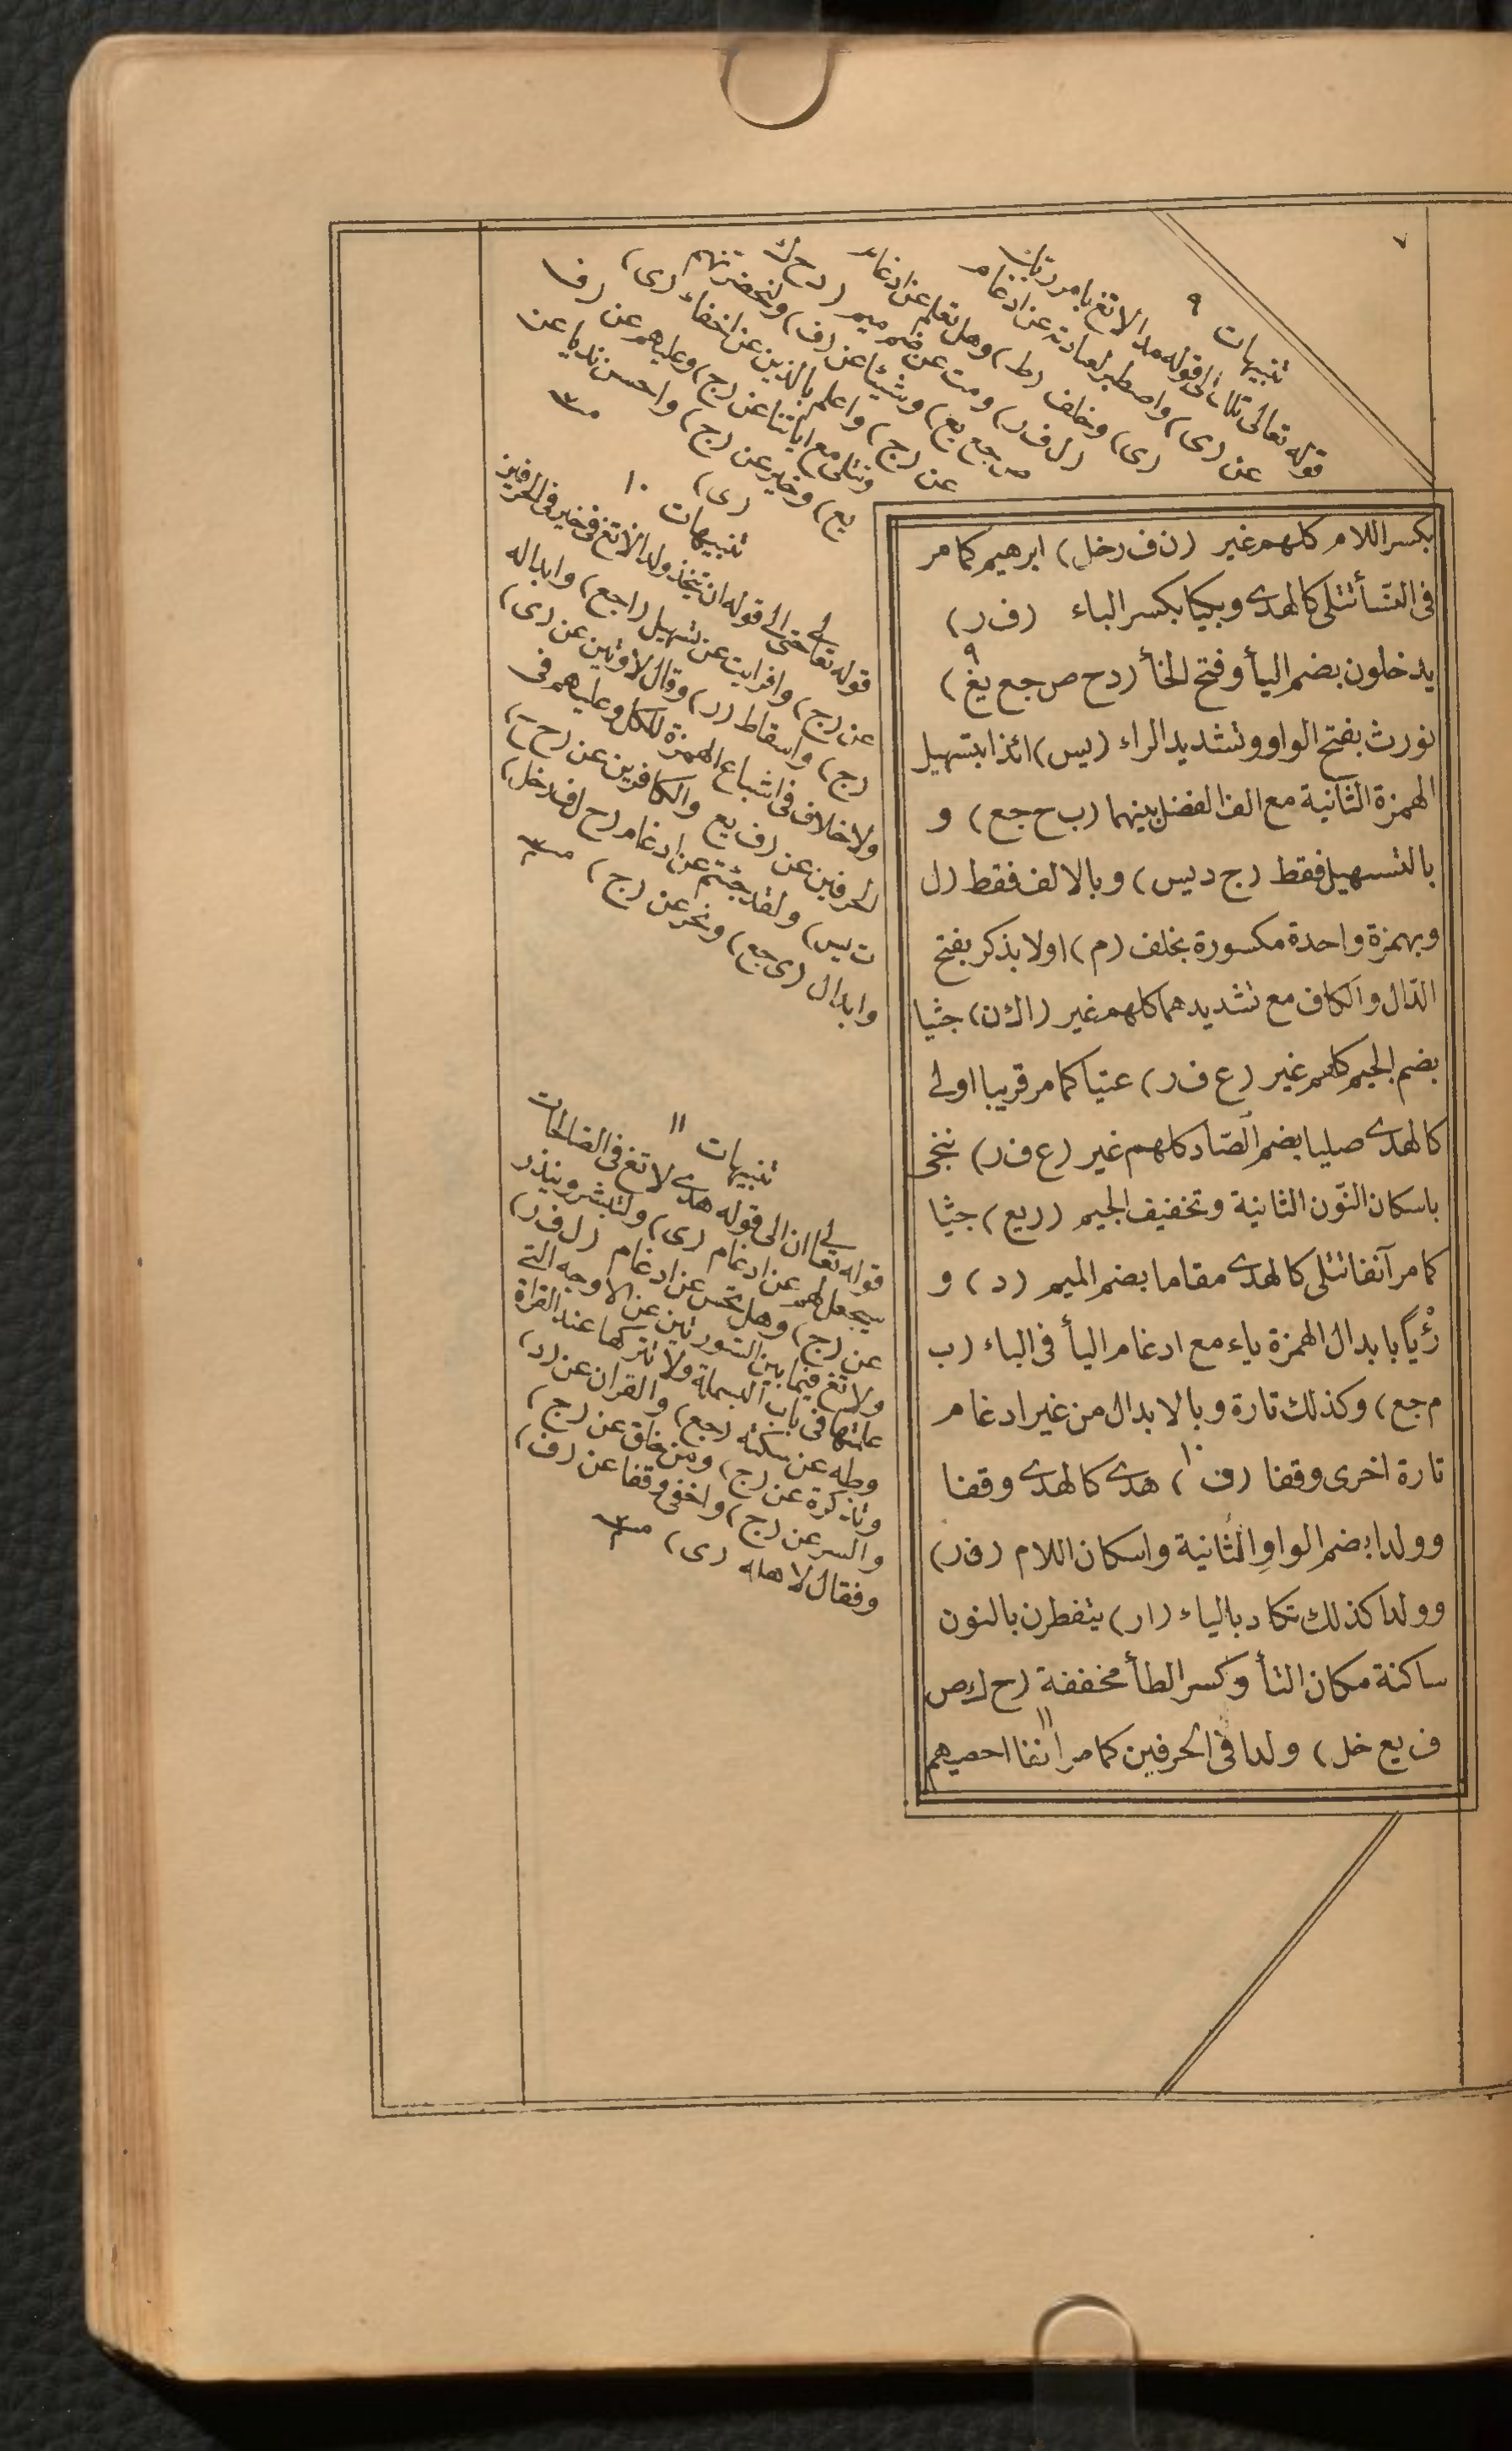 ٧
بكسر اللام كلهم غير (ن ف ر خل) ابرهيم كما مر
فى النسأ تتلى كالهدى وبكيا بكسر الباء (ف ر)
يدخلون بضم اليأ وفتح الخأ (د ح ص جع يغ) ٩
نورث بفتح الواو وتشديد الراء (يس) ائذا بتسهيل
الهمزة الثانية مع الف الفصل بينهما (ب ح جع) و
بالتسهيل فقط (ج د يس) وبالالف فقط (ل
وبهمزة واحدة مكسورة بخلف (م) اولا يذكر بفتح
الذال والكاف مع تشديدهما كلهم غير (ا ك ن) جثيا
بضم الجيم كلهم غير (ع ف ر) عتيا كما مر قريبا اولى
كالهدى صليا بضم الصاد كلهم غير (ع ف ر) ننجى
باسكان النون الثانية وتخفيف الجيم (ر يع) جثيا
كما مر آنفا تتلى كالهدى مقاما بضم الميم (د) و
رُءْيًا بابدال الهمزة ياء مع ادغام اليأ فى الياء (ب
م جع) وكذلك تارة وبالابدال من غير ادغام
تارة اخرى وقفا (ف) ١٠ هدى كالهدى وقفا
وولدا بضم الواو الثانية واسكان اللام (ف ر)
وولدا كذلك تكاد بالياء (ا ر) ينفطرن بالنون
ساكنة مكان التأ وكسر الطأ مخففة (ح ك ص
ف يع خل) ولدا فى الحرفين كما مر آنفا ١١ احصيهم
تنبيهات ٩
قوله تعالى تلك الى قوله مدا لا تغ بامر ربك
عن (ى) واصطبر لعبادته عن ادغام
(ى) وخلف (ط) وهل تعلم عن ادغام
(ل ف ر) ومت عن ضم ميم (د ح ك
ص جع يع) وشيئا عن (ف) ولنحضرنهم
عن (ج) واعلم بالذين عن اخفاء (ى)
وتتلى مع اياتنا عن (ج) وعليهم عن (ف
يع) وخير عن (ج) واحسن نديا عن
(ى)
تنبيهات ١٠
قوله تعالى حتى الى قوله ان يتخذ ولدا لا تغ فى خير فى الحرفين
عن (ج) وافرايت عن تسهيل (ا جع) وابداله
(ج) واسقاط (ر) وقال لاوتين عن (ى)
ولا خلاف فى اشباع الهمزة للكل وعليهم فى
الحرفين عن (ف يع والكافرين عن (ح
ت يس) ولقد جئتم عن ادغام (ح ل ف ر خل)
وابدال (ى جع) وتخر عن (ج)
تنبيهات ١١
قوله تعالى ان الى قوله هدى لا تغ فى الصالحات
سيجعل لهم عن ادغام (ى) ولتبشر وينذر
عن (ج) وهل تحس عن ادغام (ل ف ر)
ولا تغ فيما بين السورتين عن الاوجه التى
علمتها فى باب البسملة ولا تتركها عند القراة
وطه عن سكته (جع) والقران عن (د)
وتذكرة عن (ج) ومن خلق عن (ج)
والسر عن (ج) واخفى وقفا عن (ف)
وفقال لاهله (ى)